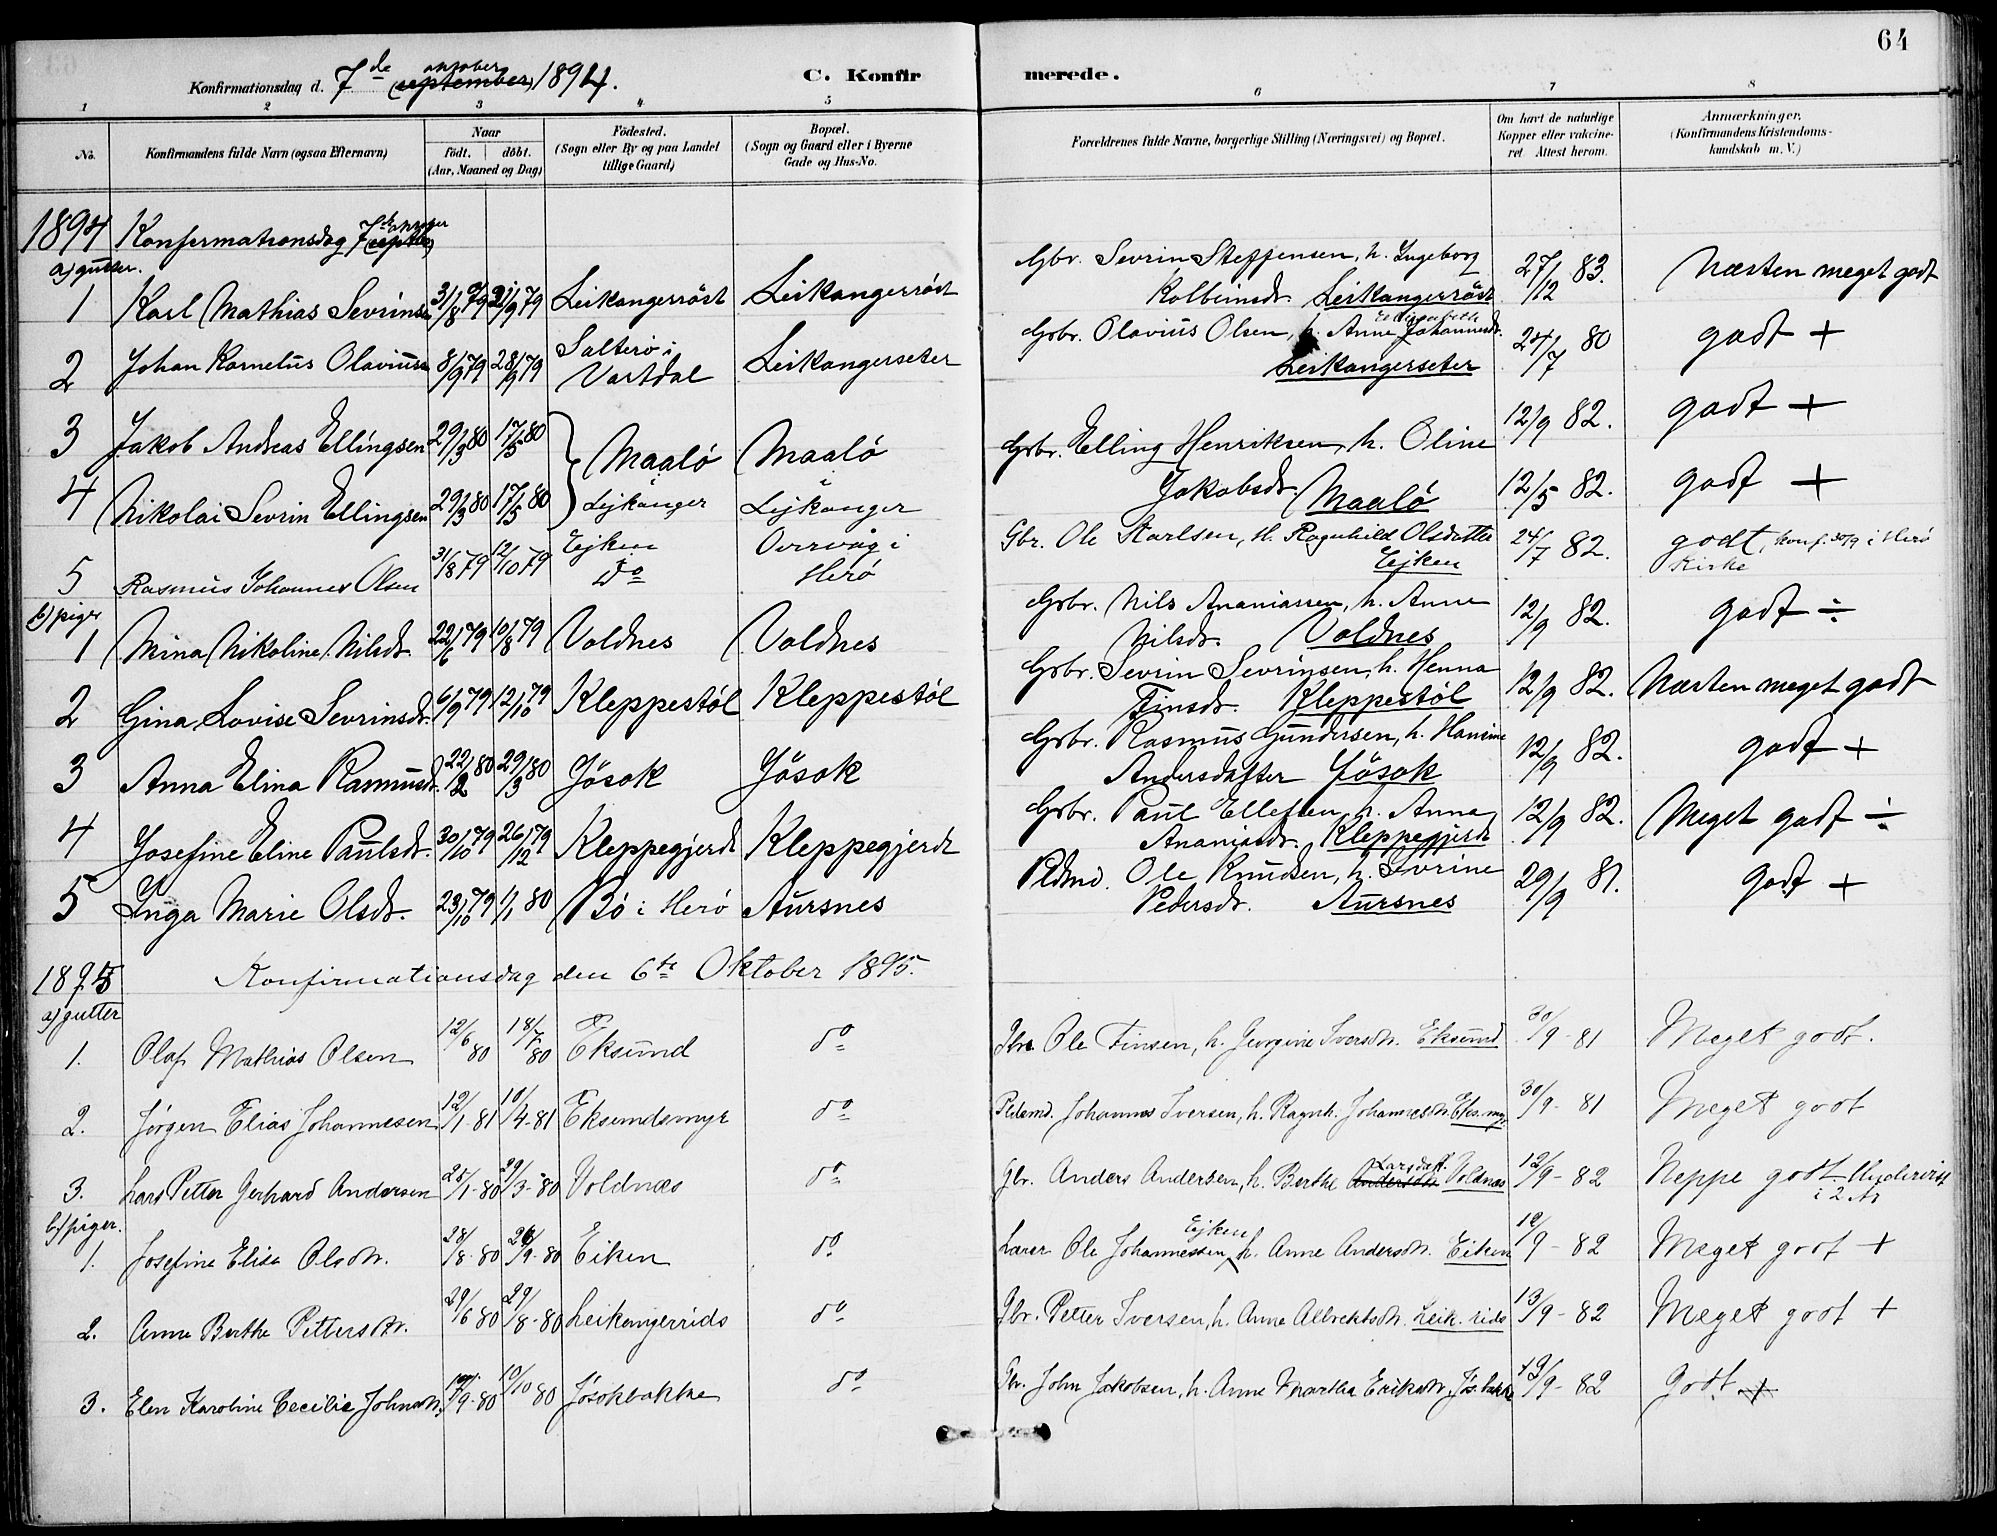 64
Konfirmationsdag d. 7de oktober (september) 1894.
C. Konfirmerede.
1 2 3 4 5 6 7 8
No. Konfirmandens fulde Navn (ogsaa Efternavn) Naar født. døbt. (Aar, Maaned og Dag) Fødested. (Sogn eller By og paa Landet tillige Gaard) Bopæl. (Sogn og Gaard eller i Byerne Gade og Hus-No. Forældrenes fulde Navne, borgerlige Stilling (Næringsvei) og Bopæl. Om havt de naturlige Kopper eller vakcineret. Attest herom. Anmærkninger. (Konfirmandens Kristendomskundskab m. V.)
1894 Konfirmationsdag 7de oktober (septbr)
a) gutter.
1 Karl Mathias Sevrinsen 31/8 79 21/9 79 Leikangerröst Leikangerröst Gbr. Sevrin Steffensen, h. Ingeborg Kolbeinsdr. Leikangerröst 27/12 83. Næsten meget godt
2 Johan Kornelius Olaviusen 8/9 79 28/9 79 Salterö i Vartdal Leikangerseter Gbr. Olavius Olsen, h. Anne Elisabeth Johannesdr. Leikangerseter 24/7 80 godt +
3 Jakob Andreas Ellingsen 29/3 80 17/5 80 Maalö Maalö Gbr. Elling Henriksen, h. Oline 12/9 82. godt +
4 Nikolai Sevrin Ellingsen 29/3 80 17/5 80 Lejkanger Lejkanger Jakobsdr. Maalö 12/5 82. godt +
5 Rasmus Johannes Olsen 31/8 79 12/10 79 Ejken do Overvåg i Herö Gbr. Ole Karlsen, h. Ragnhild Olsdatter Ejken 24/7 82. godt, konf. 30/9 i Herö Kirke
b) piger
1 Mina Nikoline Nilsdr. 22/6 79 10/8 79 Voldnes Voldnes Gbr. Nils Ananiassen, h. Anne Nilsdr. Voldnes 12/9 82. godt ÷
2 Gina Lovise Sevrinsdr. 6/9 79 12/10 79 Kleppestöl Kleppestöl Gbr. Sevrin Sevrinsen, h. Henna Finsdr. Kleppestöl 12/9 82. Næsten meget godt
3 Anna Elina Rasmusdr. 22/2 80 29/3 80 Jösok Jösok Gbr. Rasmus Gundersen, h. Hanine Andersdatter Jösok 12/9 82. godt +
4 Josefine Eline Paulsdr. 30/10 79 26/12 79 Kleppegjerdt Kleppegjerdt Gbr. Paul Ellefsen, h. Anne Ananiasdr. Kleppegjerdt 12/9 82. Meget godt ÷
5 Inga Marie Olsdr. 23/10 79 1/1 80 Bö i Herö Aursnes Pldmd. Ole Knudsen, h. Sevrine Pedersdr. Aursnes 29/9 81. godt +
1895 Konfirmationsdag den 6te Oktober 1895.
a) gutter
1. Olaf Mathias Olsen 12/6 80 18/7 80 Eksund do Gbr. Ole Finsen, h. Georgine Iversdtr. Eksund 30/9-81 Meget godt.
2. Jörgen Elias Johannesen 12/1-81 10/4-81 Eksundsmyr do Pldsmd. Johannes Iversen, h. Ragnh. Johannesdtr. Eks.myr 30/9-81 Meget godt
3. Lars Petter Gerhard Andersen 25/1-80 29/3-80 Voldnæs do Gbr. Anders Andersen, h. Berthe Andersdtr. Larsdatt. Voldnæs 12/9-82 Neppe godt. Undervist i 2 År
b) piger.
1. Josefine Elise Olsdtr. 28/8-80 26/9-80 Eiken do Lærer Ole Johannessen Ejken, h. Anne Andersdtr. Eiken 12/9-82 Meget godt +
2. Anne Berthe Pettersdtr. 29/6 80 29/8-80 Leikangerrids do Gbr. Petter Iversen, h. Anne Albrektsdtr. Leik.rids 13/9-82 Meget godt +
3. Elen Karoline Cecilie Johnsdtr. /9-80 10/10 80 Jösokbakke do Gbr. John Jakobsen, h. Anne Martha Eriksdtr. Jös.bakke 12/9-82 Godt +